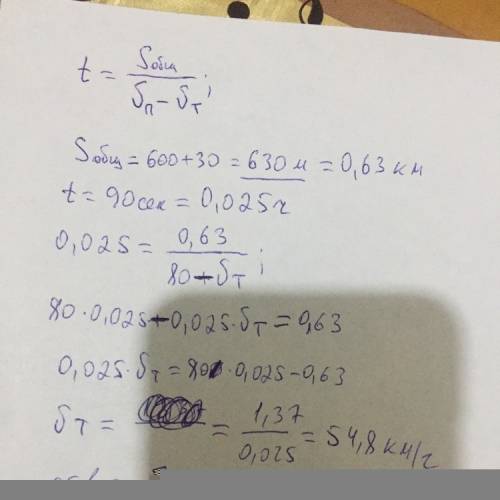 t = Sобщ / (υп − υт);
Sобщ = 600 + 30 = 630 м = 0,63 км
t = 90 сек = 0,025 ч
0,025 = 0,63 / (80 − υт);
80 · 0,025 − 0,025 · υт = 0,63
0,025 · υт = 80 · 0,025 − 0,63
υт = = 1,37 / 0,025 = 54,8 км/ч